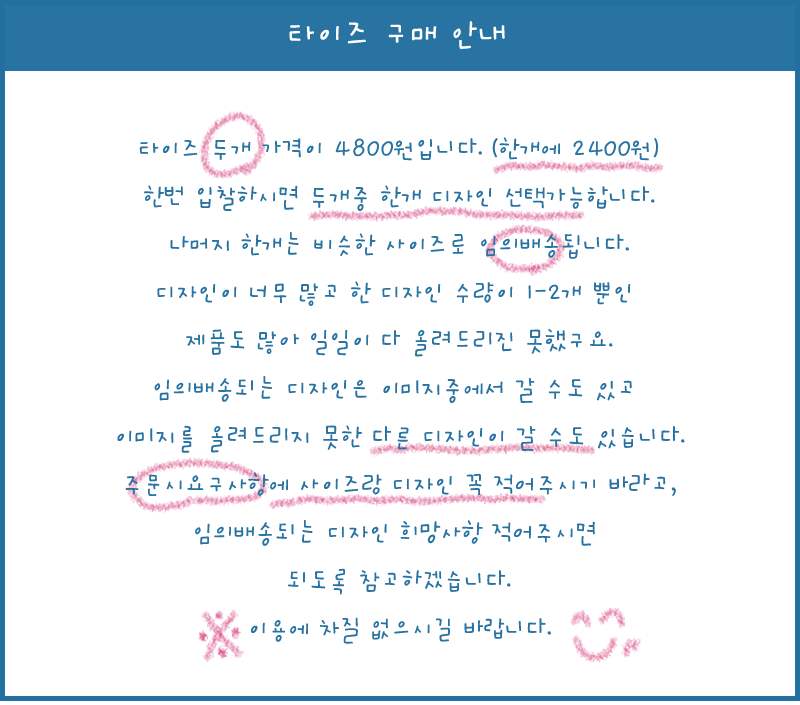 타이즈 구매 안내
타이즈 두개 가격이 4800원입니다. (한개에 2400원)
한번 입찰하시면 두개중 한개 디자인 선택가능합니다.
나머지 한개는 비슷한 사이즈로 임의배송됩니다.
디자인이 너무 많고 한 디자인 수량이 1-2개 뿐인
제품도 많아 일일이 다 올려드리진 못했구요.
임의배송되는 디자인은 이미지중에서 갈 수도 있고
이미지를 올려드리지 못한 다른 디자인이 갈 수도 있습니다.
주문시요구사항에 사이즈랑 디자인 꼭 적어주시기 바라고,
임의배송되는 디자인 희망사항 적어주시면
되도록 참고하겠습니다.
※ 이용에 차질 없으시길 바랍니다. ^^